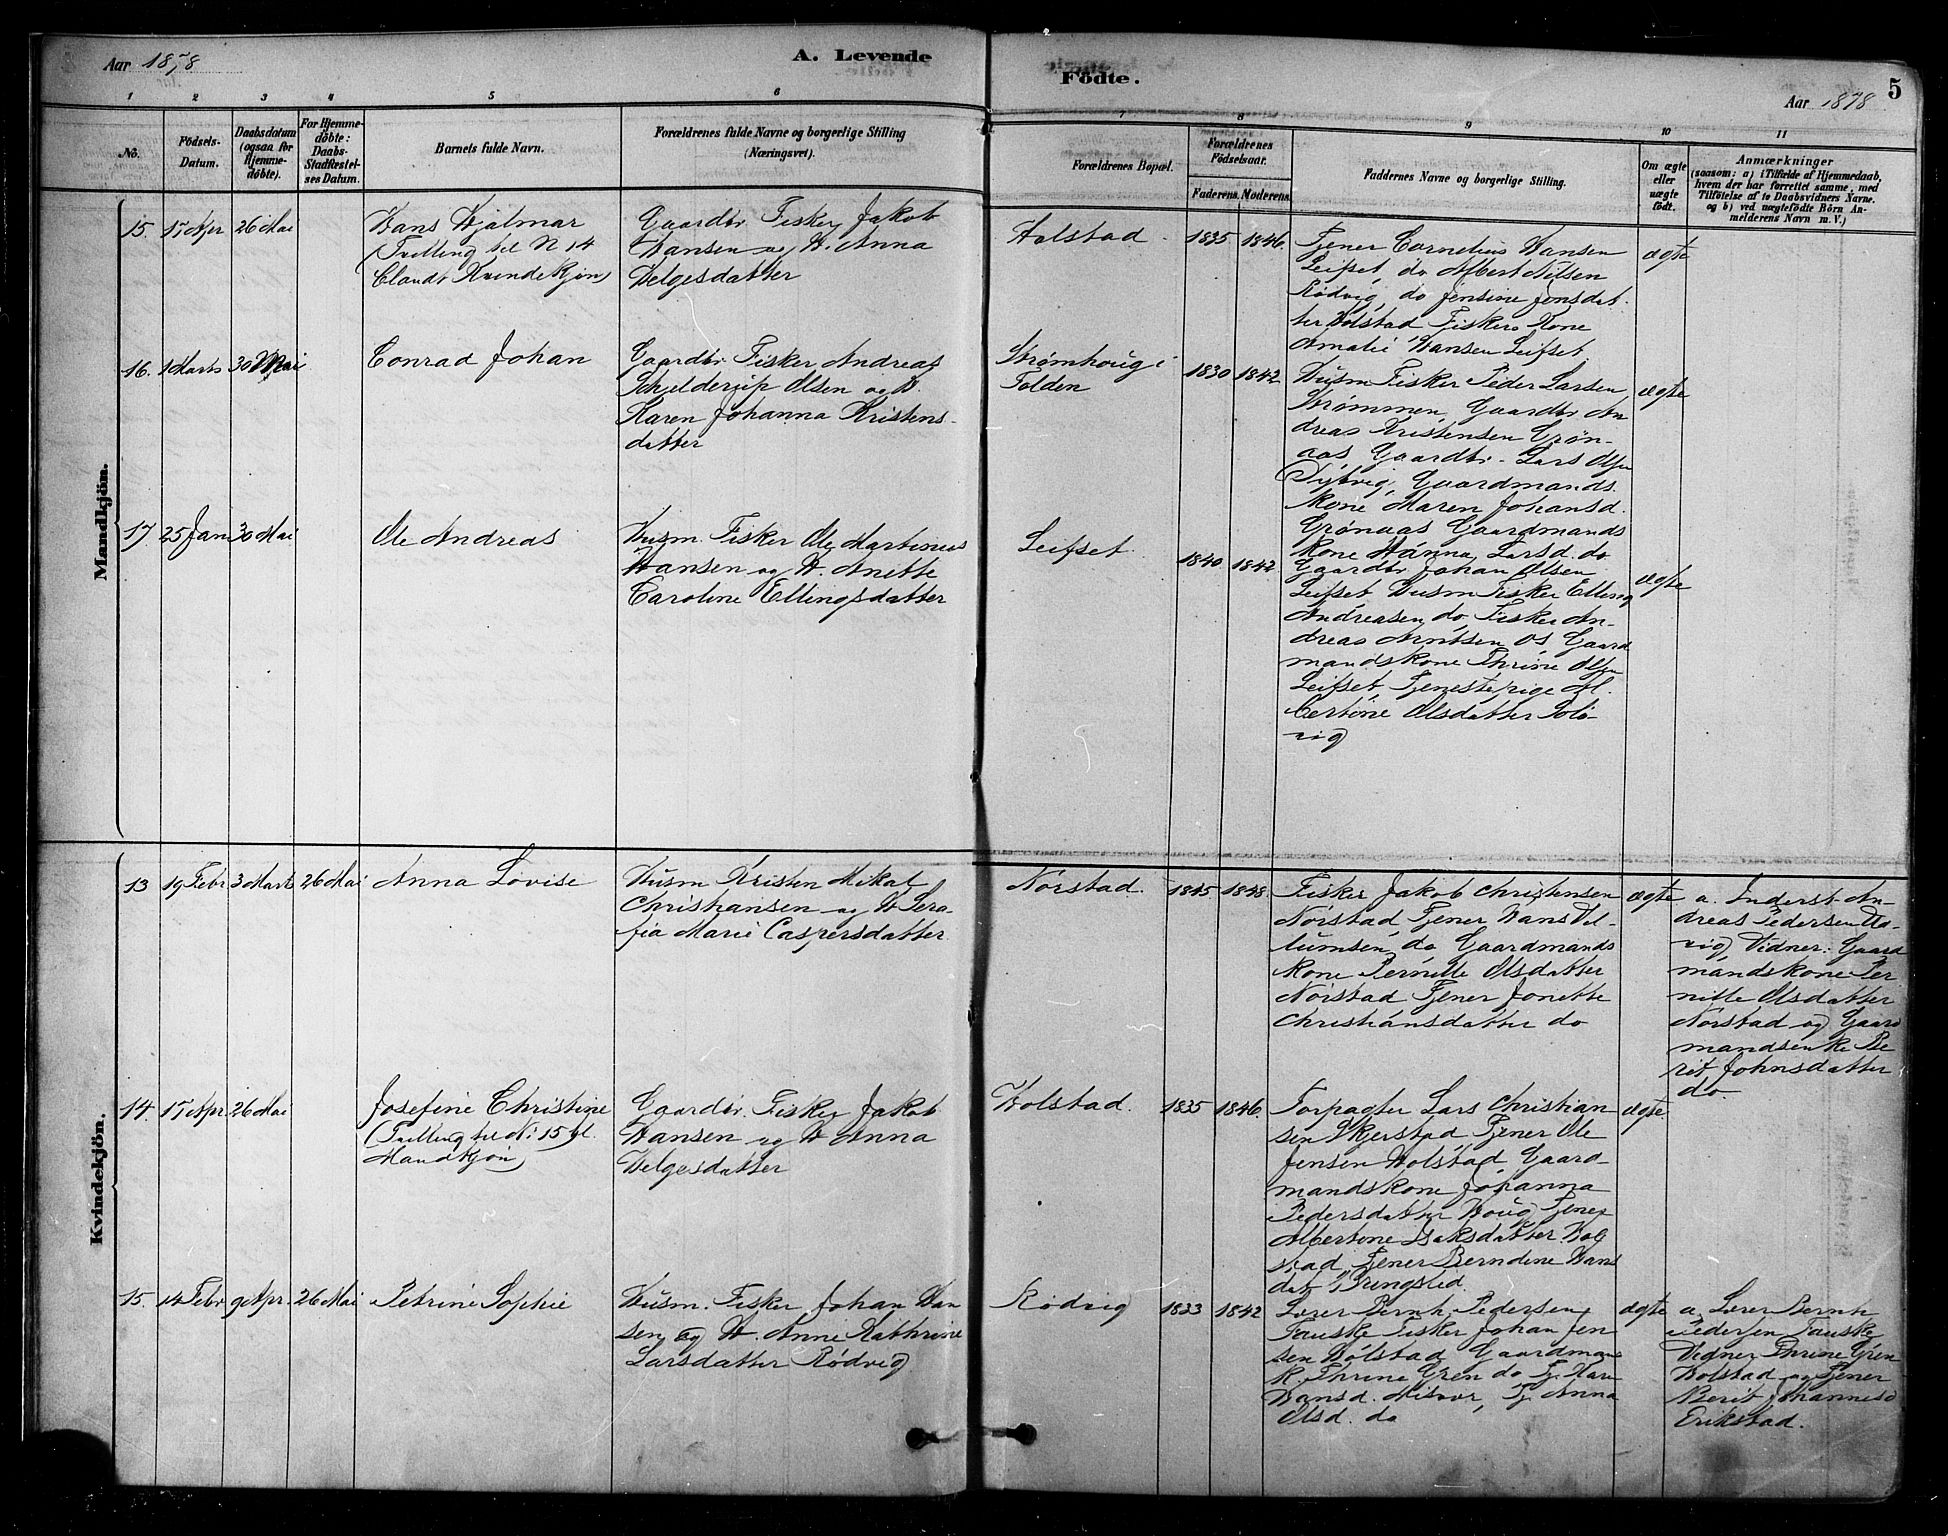 Aar 1878
A. Levende
Födte.
5
Aar 1878
1 2 3 4 5 6 7 8 9 10 11
No.
Födsels-
Datum.
Daabsdatum
(ogsaa for
Hjemme-
döbte).
For Hjemme-
döbte:
Daabs-
Stadfæstel-
ses Datum.
Barnets fulde Navn.
Forældrenes fulde Navne og borgerlige Stilling
(Næringsvei).
Forældrenes Bopæl.
Forældrenes
Födselsaar.
Faderens. Moderens.
Faddernes Navne og borgerlige Stilling.
Om ægte
eller
uægte
født.
Anmærkninger
(saasom: a) i Tilfælde af Hjemmedaab,
hvem der har forrettet samme, med
Tilföielse af to Daabsvidners Navne.
og b) ved uægtefödte Börn An-
melderens Navn m. V.)
Mandkjön.
15. 17 Apr 26 Mai
Hans Hjalmar
(Tvilling til N 14
blandt Kvindekjøn)
Gaardbr. Fisker Jakob
Hansen og H. Anna
Helgesdatter
Holstad
1835 1846.
Tjener Cornelius Hansen
Leifset, do Albert Nilsen
Rödvig, do Jensine Jensdat-
ter Holstad Fiskers Kone
Amalie Hansen Leifset
ægte
16. 1 Marts 30 Mai
Conrad Johan
Gaardbr. Fisker Andreas
Schjelderup Olsen og H.
Karen Johanna Kristens-
datter
Strømhoug i
Folden
1830 1842
Husm Fisker Peder Larsen
Strømmen, Gaardbr An
dreas Kristensen Grøn-
aas, Gaardbr. Lars Olsen
Dybvig, Gaardmands
Kone Maren Johansd.
Grønaas Gaardmands
Kone Hanna Larsd. do
ægte
17 25 Jan 30 Mai
Ole Andreas
Husm Fisker Ole Martinus
Hansen og H. Anette
Caroline Ellingsdatter
Leifset
1840 1842
Gaardbr Johan Olsen
Leifset Husm Fisker Elling
Andreasen do, Fisker An-
dreas Arntsen Os Gaard
mandskone Thrine Olsen
Leifset, Tjenestepige Al-
bertine Olsdatter
vig
ægte
Kvindekjön.
13 19 Febr 3 Marts 26 Mai
Anna Lovise
Husm Kristen Mikal
Christiansen og H Sera-
fia Marie Caspersdatter
Norstad.
1845 1848.
Fisker Jakob Christensen
Norstad Tjener Hans Vil-
lumsen do Gaardmands
Kone Pernille Olsdatter
Norstad Tjener Jonette
Christiansdatter do
ægte
a. Inderst An-
dreas Pedersen
vig Vidner: Gaard
mandskone Per
nille Olsdatter
Norstad og Gaard
mandsenke Be
rit Johnsdatter
do.
14. 17 Apr. 26 Mai
Josefine Christine
(Tvilling til N: 15 bl.
Mandkjøn)
Gaardbr. Fisker Jakob
Hansen og H Anna
Helgesdatter
Holstad.
1835 1846.
Forpagter Lars Christian
sen Skjerstad Tjener Ole
Jensen Holstad, Gaard-
mandskone Johanna
Pedersdatter Houg Tjener
Albertine Isaksdatter Hol
stad, Tjener Berndine Hans
dat Brengsled.
ægte
15. 14 Febr 9 Apr. 26 Mai
Petrine Sophie
Husm. Fisker Johan Han
sen og H. Anne Kathrine
Larsdatter Rødvig
Rødvig
1833 1842
Lærer Bernh. Pedersen
Fauske Fisker Johan Jen
sen Holstad Gaardman
K. Thrine Gren do Tj. Kar
Hansd. Misvær, Tj. Anna
Olsd. do
ægte
a. Lærer Bernh
Pedersen Fauske
Vidner Thrine Gren
Holstad og Tjener
Berit Johannesd
Erikstad.